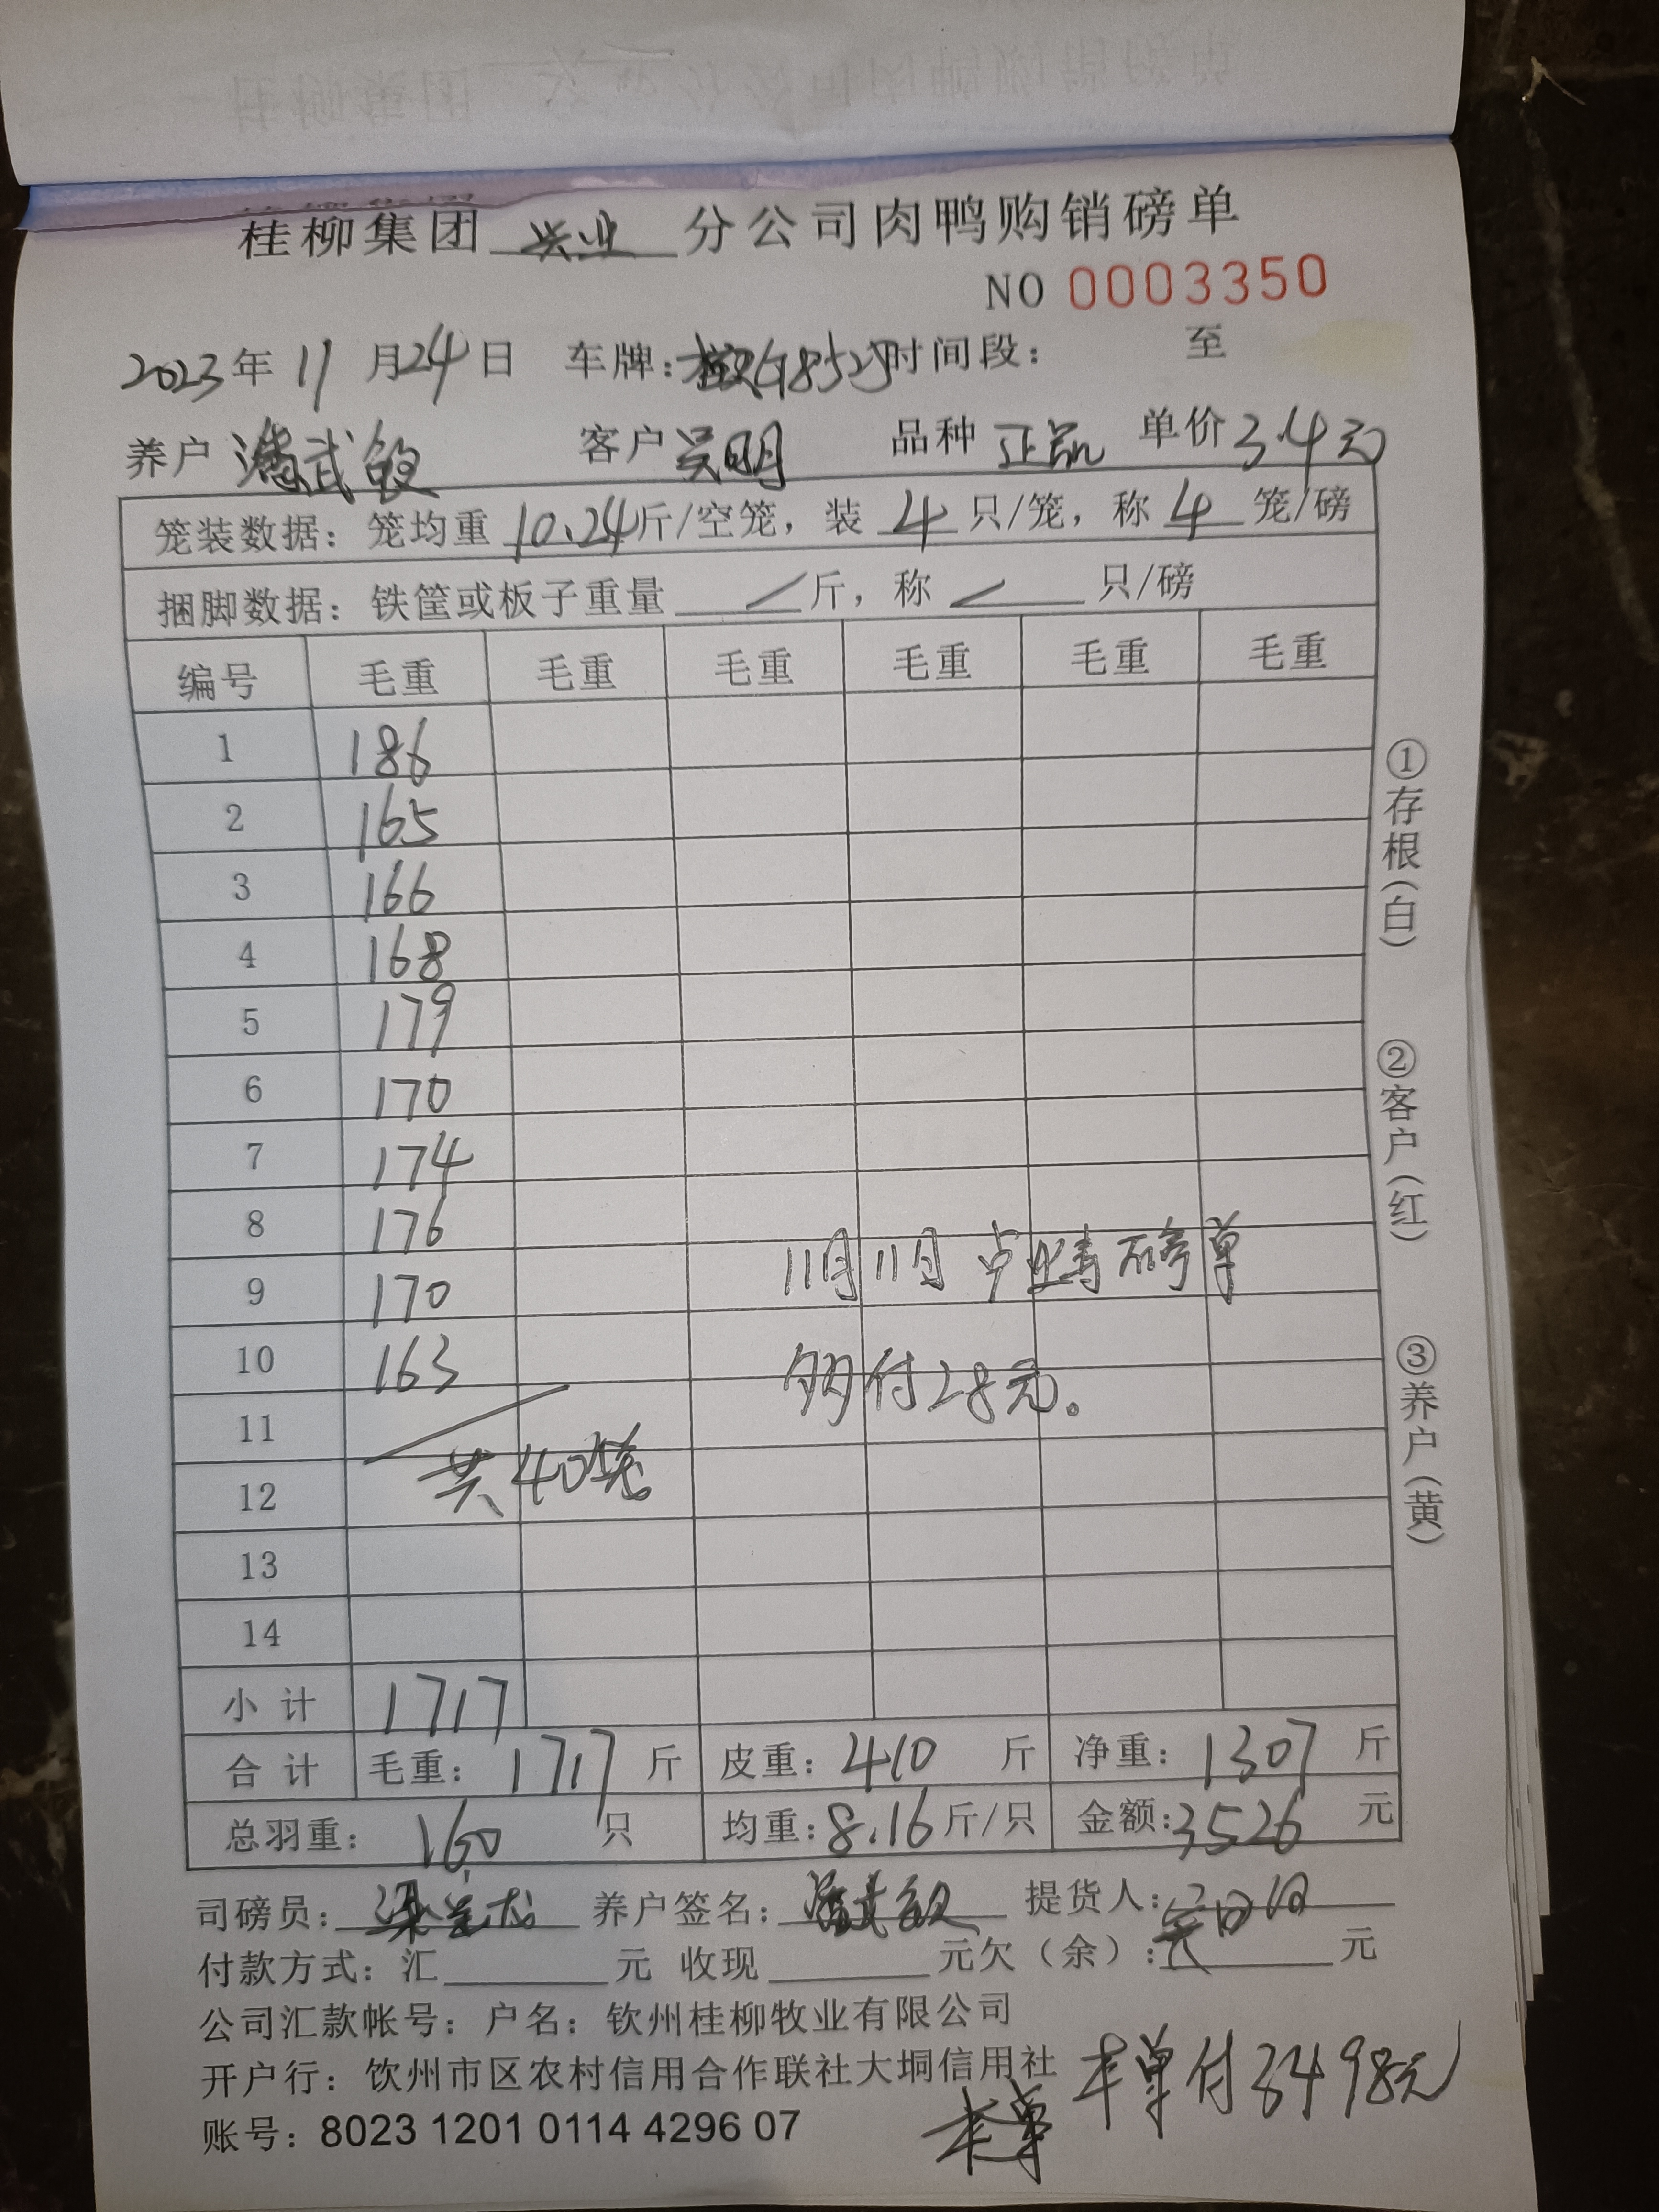 桂柳集团 兴业 分公司肉鸭购销磅单
NO 0003350
2023年 11月24日 车牌: 时间段: 至
养户 潘武敏 客户 吴明 品种 正品 单价 3.4元
笼装数据: 笼均重 10.24斤/空笼, 装 4 只/笼, 称 4 笼/磅
捆脚数据: 铁筐或板子重量 / 斤, 称 / 只/磅
编号 毛重 毛重 毛重 毛重 毛重 毛重
1 186
2 165
3 166
4 168
5 179
6 170
7 174
8 176
9 170
10 163
11
12
13
14
共40笼
11月11日 磅单
多付28元。
小计 1717
合计 毛重: 1717 斤 皮重: 410 斤 净重: 1307 斤
总羽重: 160 只 均重: 8.16 斤/只 金额: 3526 元
司磅员: 梁 养户签名: 潘武敏 提货人:
付款方式: 汇 元 收现 元欠(余): 元
公司汇款帐号: 户名: 钦州桂柳牧业有限公司
开户行: 饮州市区农村信用合作联社大垌信用社
本单付3498元
本单
账号: 8023 1201 0114 4296 07
①存根(白)
②客户(红)
③养户(黄)